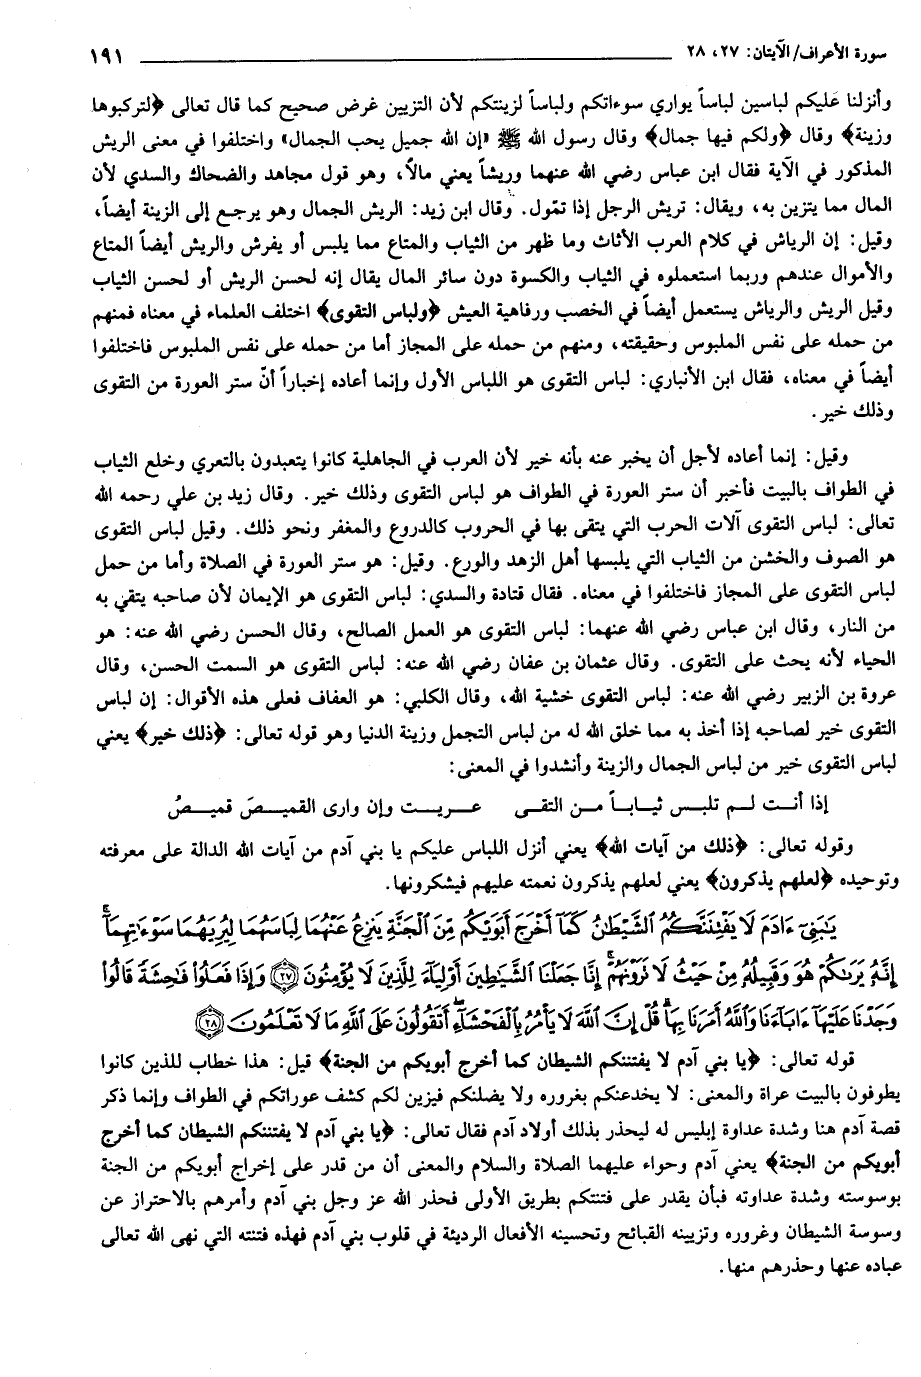 سورة الأعراف/ الآيتان: ٢٧، ٢٨
١٩١
وأنزلنا عليكم لباسين لباساً يواري سوءاتكم ولباساً لزينتكم لأن التزيين غرض صحيح كما قال تعالى ﴿لتركبوها
وزينة﴾ وقال ﴿ولكم فيها جمال﴾ وقال رسول الله ﷺ «إن الله جميل يحب الجمال» واختلفوا في معنى الريش
المذكور في الآية فقال ابن عباس رضي الله عنهما وريشاً يعني مالاً، وهو قول مجاهد والضحاك والسدي لأن
المال مما يتزين به، ويقال: تريش الرجل إذا تمّول. وقال ابن زيد: الريش الجمال وهو يرجع إلى الزينة أيضاً،
وقيل: إن الرياش في كلام العرب الأثاث وما ظهر من الثياب والمتاع مما يلبس أو يفرش والريش أيضاً المتاع
والأموال عندهم وربما استعملوه في الثياب والكسوة دون سائر المال يقال إنه لحسن الريش أو لحسن الثياب
وقيل الريش والرياش يستعمل أيضاً في الخصب ورفاهية العيش ﴿ولباس التقوى﴾ اختلف العلماء في معناه فمنهم
من حمله على نفس الملبوس وحقيقته، ومنهم من حمله على المجاز أما من حمله على نفس الملبوس فاختلفوا
أيضاً في معناه، فقال ابن الأنباري: لباس التقوى هو اللباس الأول وإنما أعاده إخباراً أنّ ستر العورة من التقوى
وذلك خير.
وقيل: إنما أعاده لأجل أن يخبر عنه بأنه خير لأن العرب في الجاهلية كانوا يتعبدون بالتعري وخلع الثياب
في الطواف بالبيت فأخبر أن ستر العورة في الطواف هو لباس التقوى وذلك خير. وقال زيد بن علي رحمه الله
تعالى: لباس التقوى آلات الحرب التي يتقى بها في الحروب كالدروع والمغفر ونحو ذلك. وقيل لباس التقوى
هو الصوف والخشن من الثياب التي يلبسها أهل الزهد والورع. وقيل: هو ستر العورة في الصلاة وأما من حمل
لباس التقوى على المجاز فاختلفوا في معناه. فقال قتادة والسدي: لباس التقوى هو الإيمان لأن صاحبه يتقي به
من النار، وقال ابن عباس رضي الله عنهما: لباس التقوى هو العمل الصالح، وقال الحسن رضي الله عنه: هو
الحياء لأنه يحث على التقوى. وقال عثمان بن عفان رضي الله عنه: لباس التقوى هو السمت الحسن، وقال
عروة بن الزبير رضي الله عنه: لباس التقوى خشية الله، وقال الكلبي: هو العفاف فعلى هذه الأقوال: إن لباس
التقوى خير لصاحبه إذا أخذ به مما خلق الله له من لباس التجمل وزينة الدنيا وهو قوله تعالى: ﴿ذلك خير﴾ يعني
لباس التقوى خير من لباس الجمال والزينة وأنشدوا في المعنى:
إذا أنت لم تلبس ثياباً من التقى عريت وإن وارى القميصَ قميصُ
وقوله تعالى: ﴿ذلك من آيات الله﴾ يعني أنزل اللباس عليكم يا بني آدم من آيات الله الدالة على معرفته
وتوحيده ﴿لعلهم يذكرون﴾ يعني لعلهم يذكرون نعمته عليهم فيشكرونها.
يَٰبَنِىٓ ءَادَمَ لَا يَفْتِنَنَّكُمُ ٱلشَّيْطَٰنُ كَمَآ أَخْرَجَ أَبَوَيْكُم مِّنَ ٱلْجَنَّةِ يَنزِعُ عَنْهُمَا لِبَاسَهُمَا لِيُرِيَهُمَا سَوْءَٰتِهِمَآ ۚ
إِنَّهُۥ يَرَىٰكُمْ هُوَ وَقَبِيلُهُۥ مِنْ حَيْثُ لَا تَرَوْنَهُمْ ۗ إِنَّا جَعَلْنَا ٱلشَّيَٰطِينَ أَوْلِيَآءَ لِلَّذِينَ لَا يُؤْمِنُونَ ﴿٢٧﴾ وَإِذَا فَعَلُوا۟ فَٰحِشَةً قَالُوا۟
وَجَدْنَا عَلَيْهَآ ءَابَآءَنَا وَٱللَّهُ أَمَرَنَا بِهَا ۗ قُلْ إِنَّ ٱللَّهَ لَا يَأْمُرُ بِٱلْفَحْشَآءِ ۖ أَتَقُولُونَ عَلَى ٱللَّهِ مَا لَا تَعْلَمُونَ ﴿٢٨﴾
قوله تعالى: ﴿يا بني آدم لا يفتننكم الشيطان كما أخرج أبويكم من الجنة﴾ قيل: هذا خطاب للذين كانوا
يطوفون بالبيت عراة والمعنى: لا يخدعنكم بغروره ولا يضلنكم فيزين لكم كشف عوراتكم في الطواف وإنما ذكر
قصة آدم هنا وشدة عداوة إبليس له ليحذر بذلك أولاد آدم فقال تعالى: ﴿يا بني آدم لا يفتننكم الشيطان كما أخرج
أبويكم من الجنة﴾ يعني آدم وحواء عليهما الصلاة والسلام والمعنى أن من قدر على إخراج أبويكم من الجنة
بوسوسته وشدة عداوته فبأن يقدر على فتنتكم بطريق الأولى فحذر الله عز وجل بني آدم وأمرهم بالاحتراز عن
وسوسة الشيطان وغروره وتزيينه القبائح وتحسينه الأفعال الرديئة في قلوب بني آدم فهذه فتنته التي نهى الله تعالى
عباده عنها وحذرهم منها.